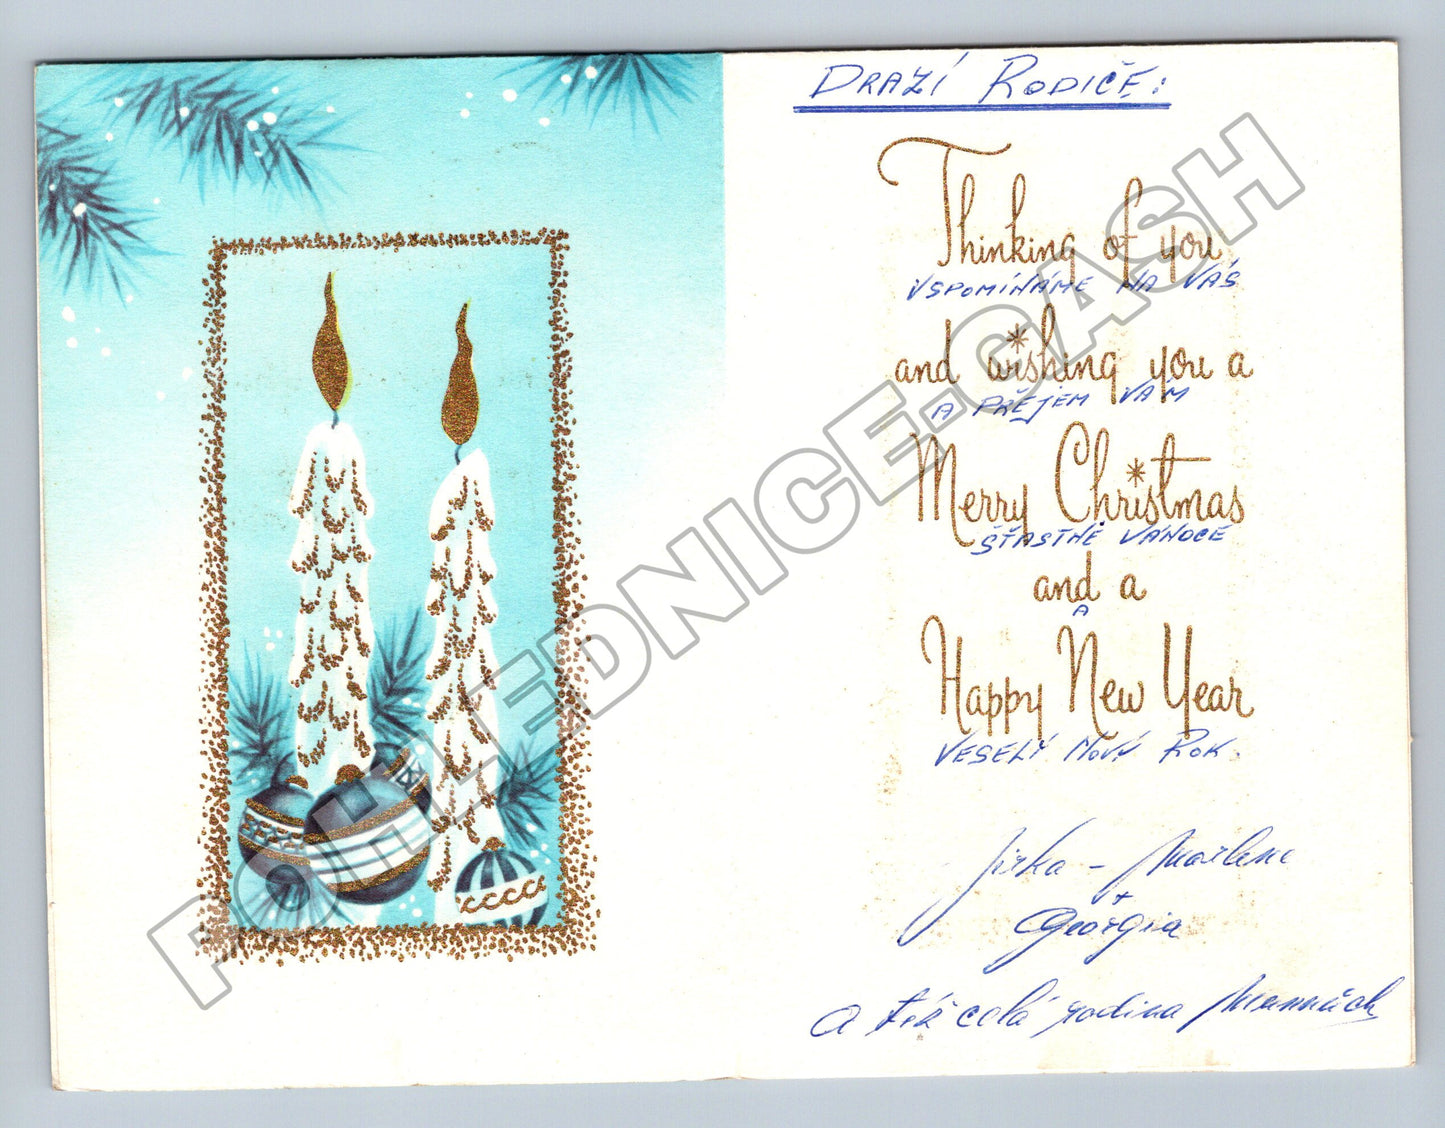 DRAZÍ RODIČE:
Thinking of you
VSPOMÍNÁME NA VÁS
and wishing you a
A PŘEJEM VÁM
Merry Christmas
ŠŤASTNÉ VÁNOCE
and a
A
Happy New Year
VESELÝ NOVÝ ROK.
Jirka - Marlene
+
Georgia
a též celá rodina
POHLEDNICE.CASH